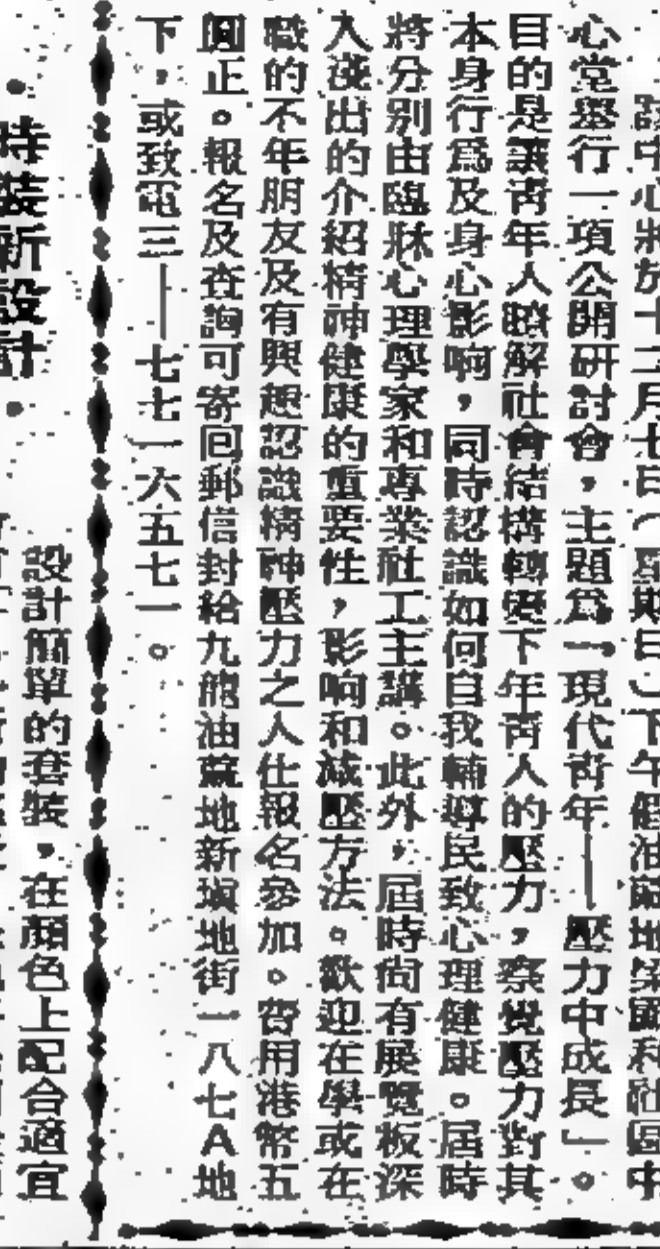 該中心將於十二月七日(星期日)下午假油蔴地梁顯利社區中
心堂舉行一項公開研討會，主題爲「現代青年——壓力中成長」。
目的是讓青年人瞭解社會結構轉變下年青人的壓力，察覺壓力對其
本身行爲及身心影响，同時認識如何自我輔導民致心理健康。屆時
將分別由臨牀心理學家和專業社工主講。此外，屆時尙有展覽板深
入淺出的介紹精神健康的重要性，影响和減壓方法。歡迎在學或在
職的不年朋友及有興趣認識精神壓力之人仕報名參加。費用港幣五
圓正。報名及查詢可寄回郵信封給九龍油蔴地新塡地街一八七A地
下，或致電三——七七一六五七一。
·時裝新設計·
設計簡單的套裝，在顏色上配合適宜